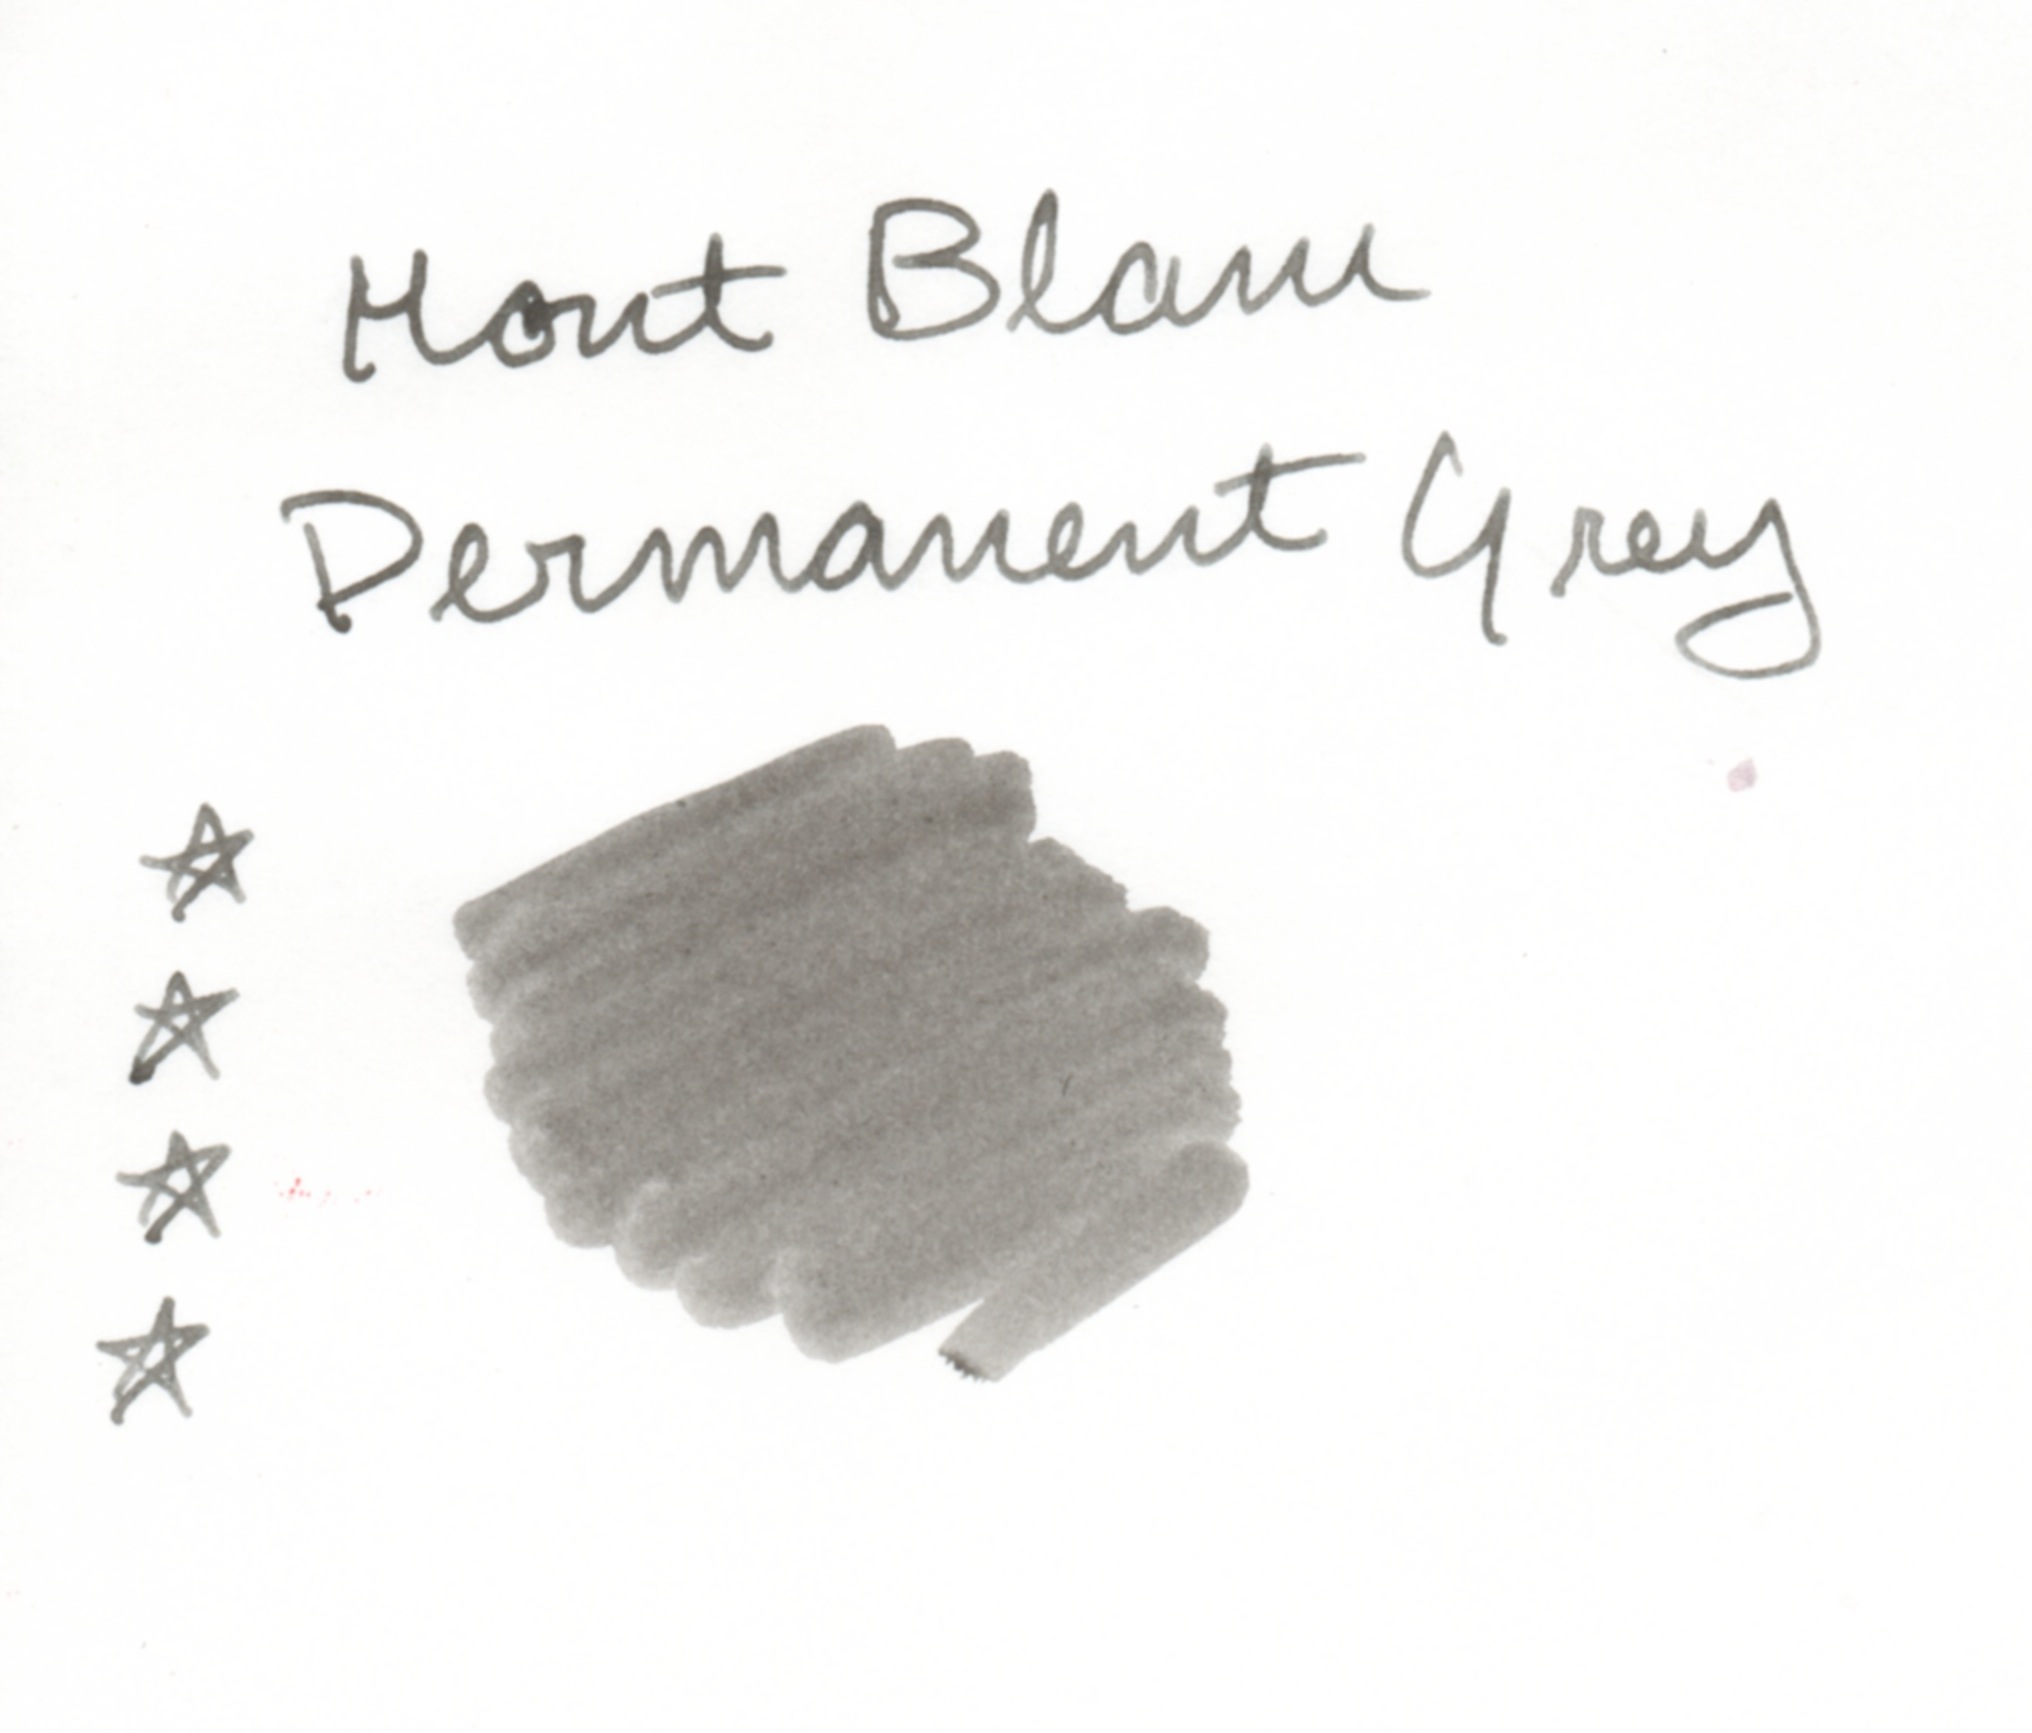 Mont Blanc
Permanent Grey